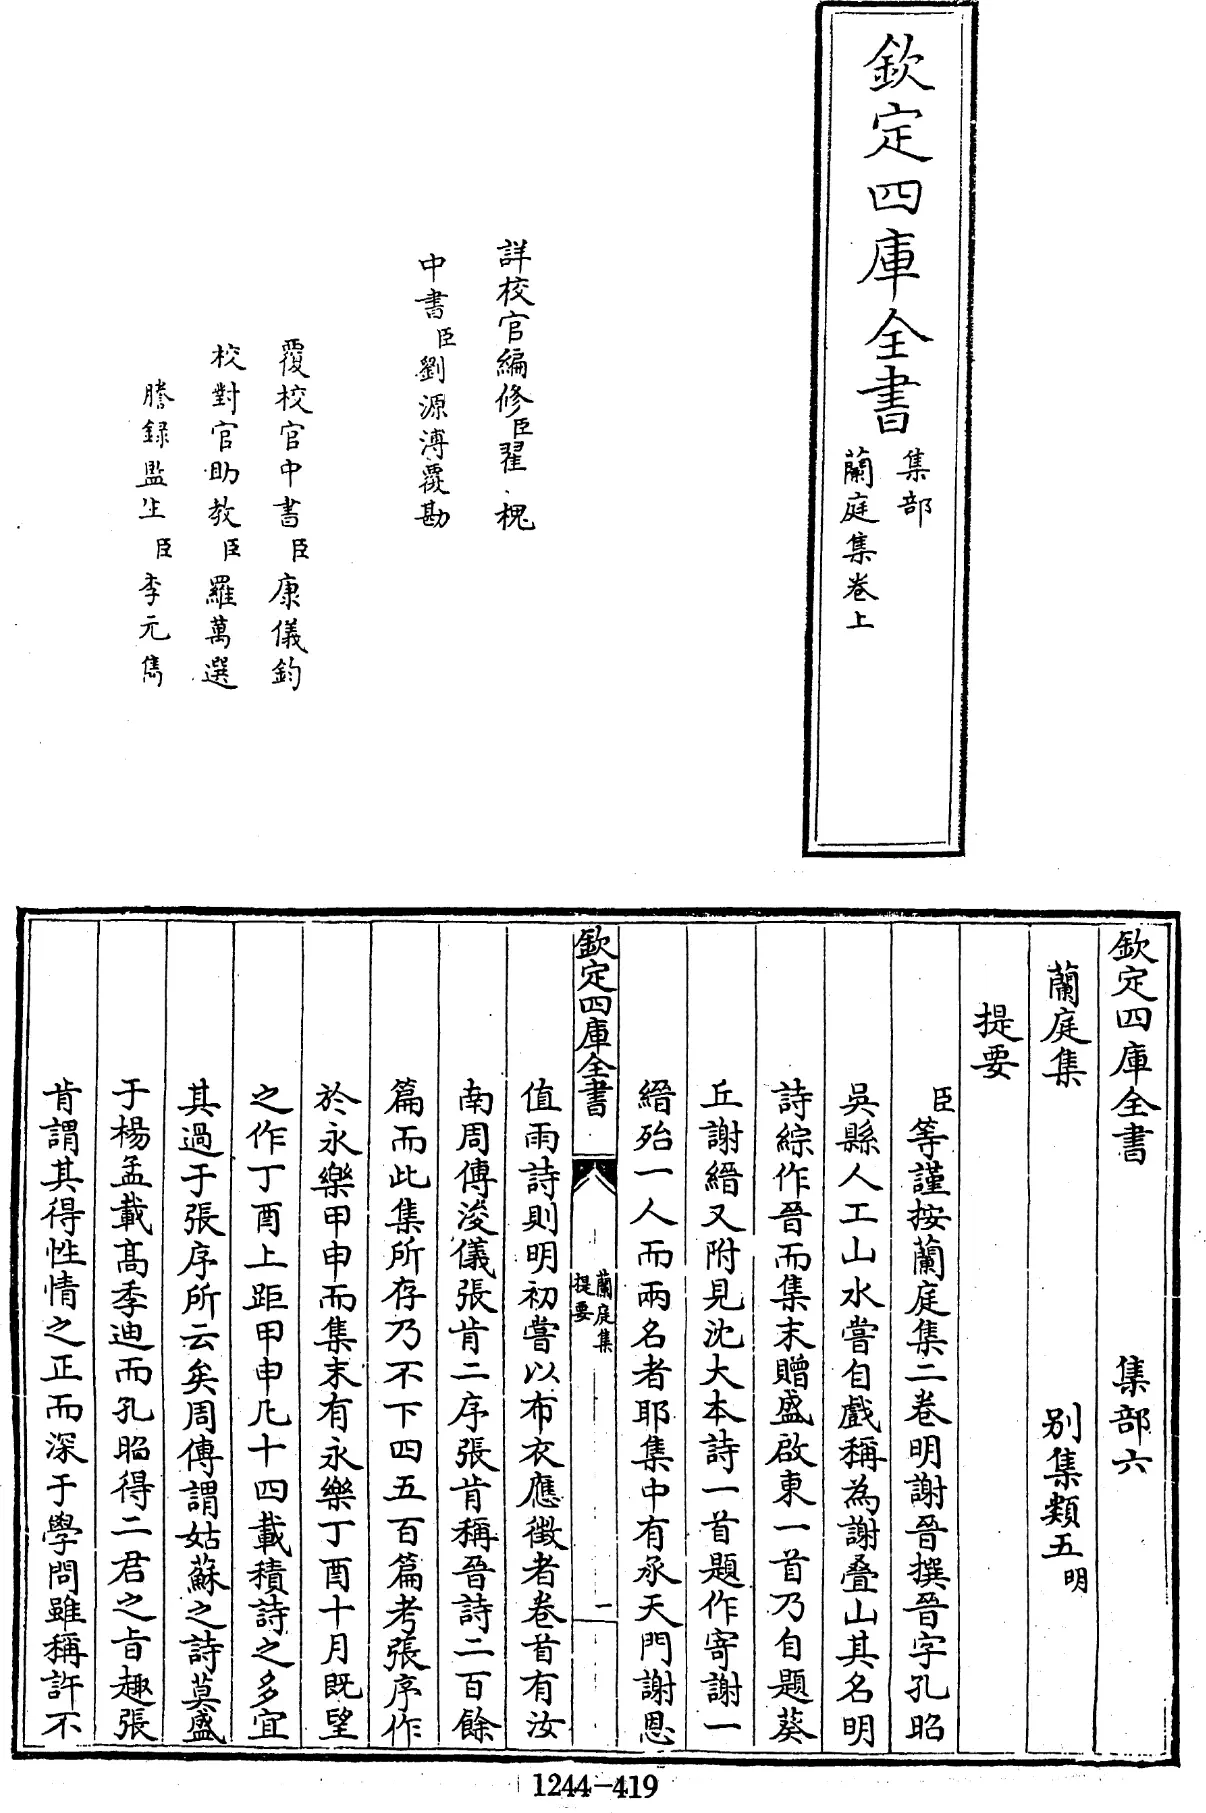 欽定四庫全書
集部
蘭庭集卷上
詳校官編修臣翟槐
中書臣劉源溥覆勘
覆校官中書臣康儀鈞
校對官助教臣羅萬選
謄錄監生臣李元雋
欽定四庫全書 集部六
蘭庭集 别集類五明
提要
臣等謹按蘭庭集二卷明謝晉撰晉字孔昭
吳縣人工山水嘗自戲稱為謝叠山其名明
詩綜作晉而集末贈盛啟東一首乃自題葵
丘謝縉又附見沈大本詩一首題作寄謝一
縉殆一人而兩名者耶集中有承天門謝恩
欽定四庫全書
蘭庭集
提要
一
值雨詩則明初嘗以布衣應徵者卷首有汝
南周傳浚儀張肯二序張肯稱晉詩二百餘
篇而此集所存乃不下四五百篇考張序作
於永樂甲申而集末有永樂丁酉十月既望
之作丁酉上距甲申凡十四載積詩之多宜
其過于張序所云矣周傳謂姑蘇之詩莫盛
于楊孟載高季迪而孔昭得二君之旨趣張
肯謂其得性情之正而深于學問雖稱許不
1244-419